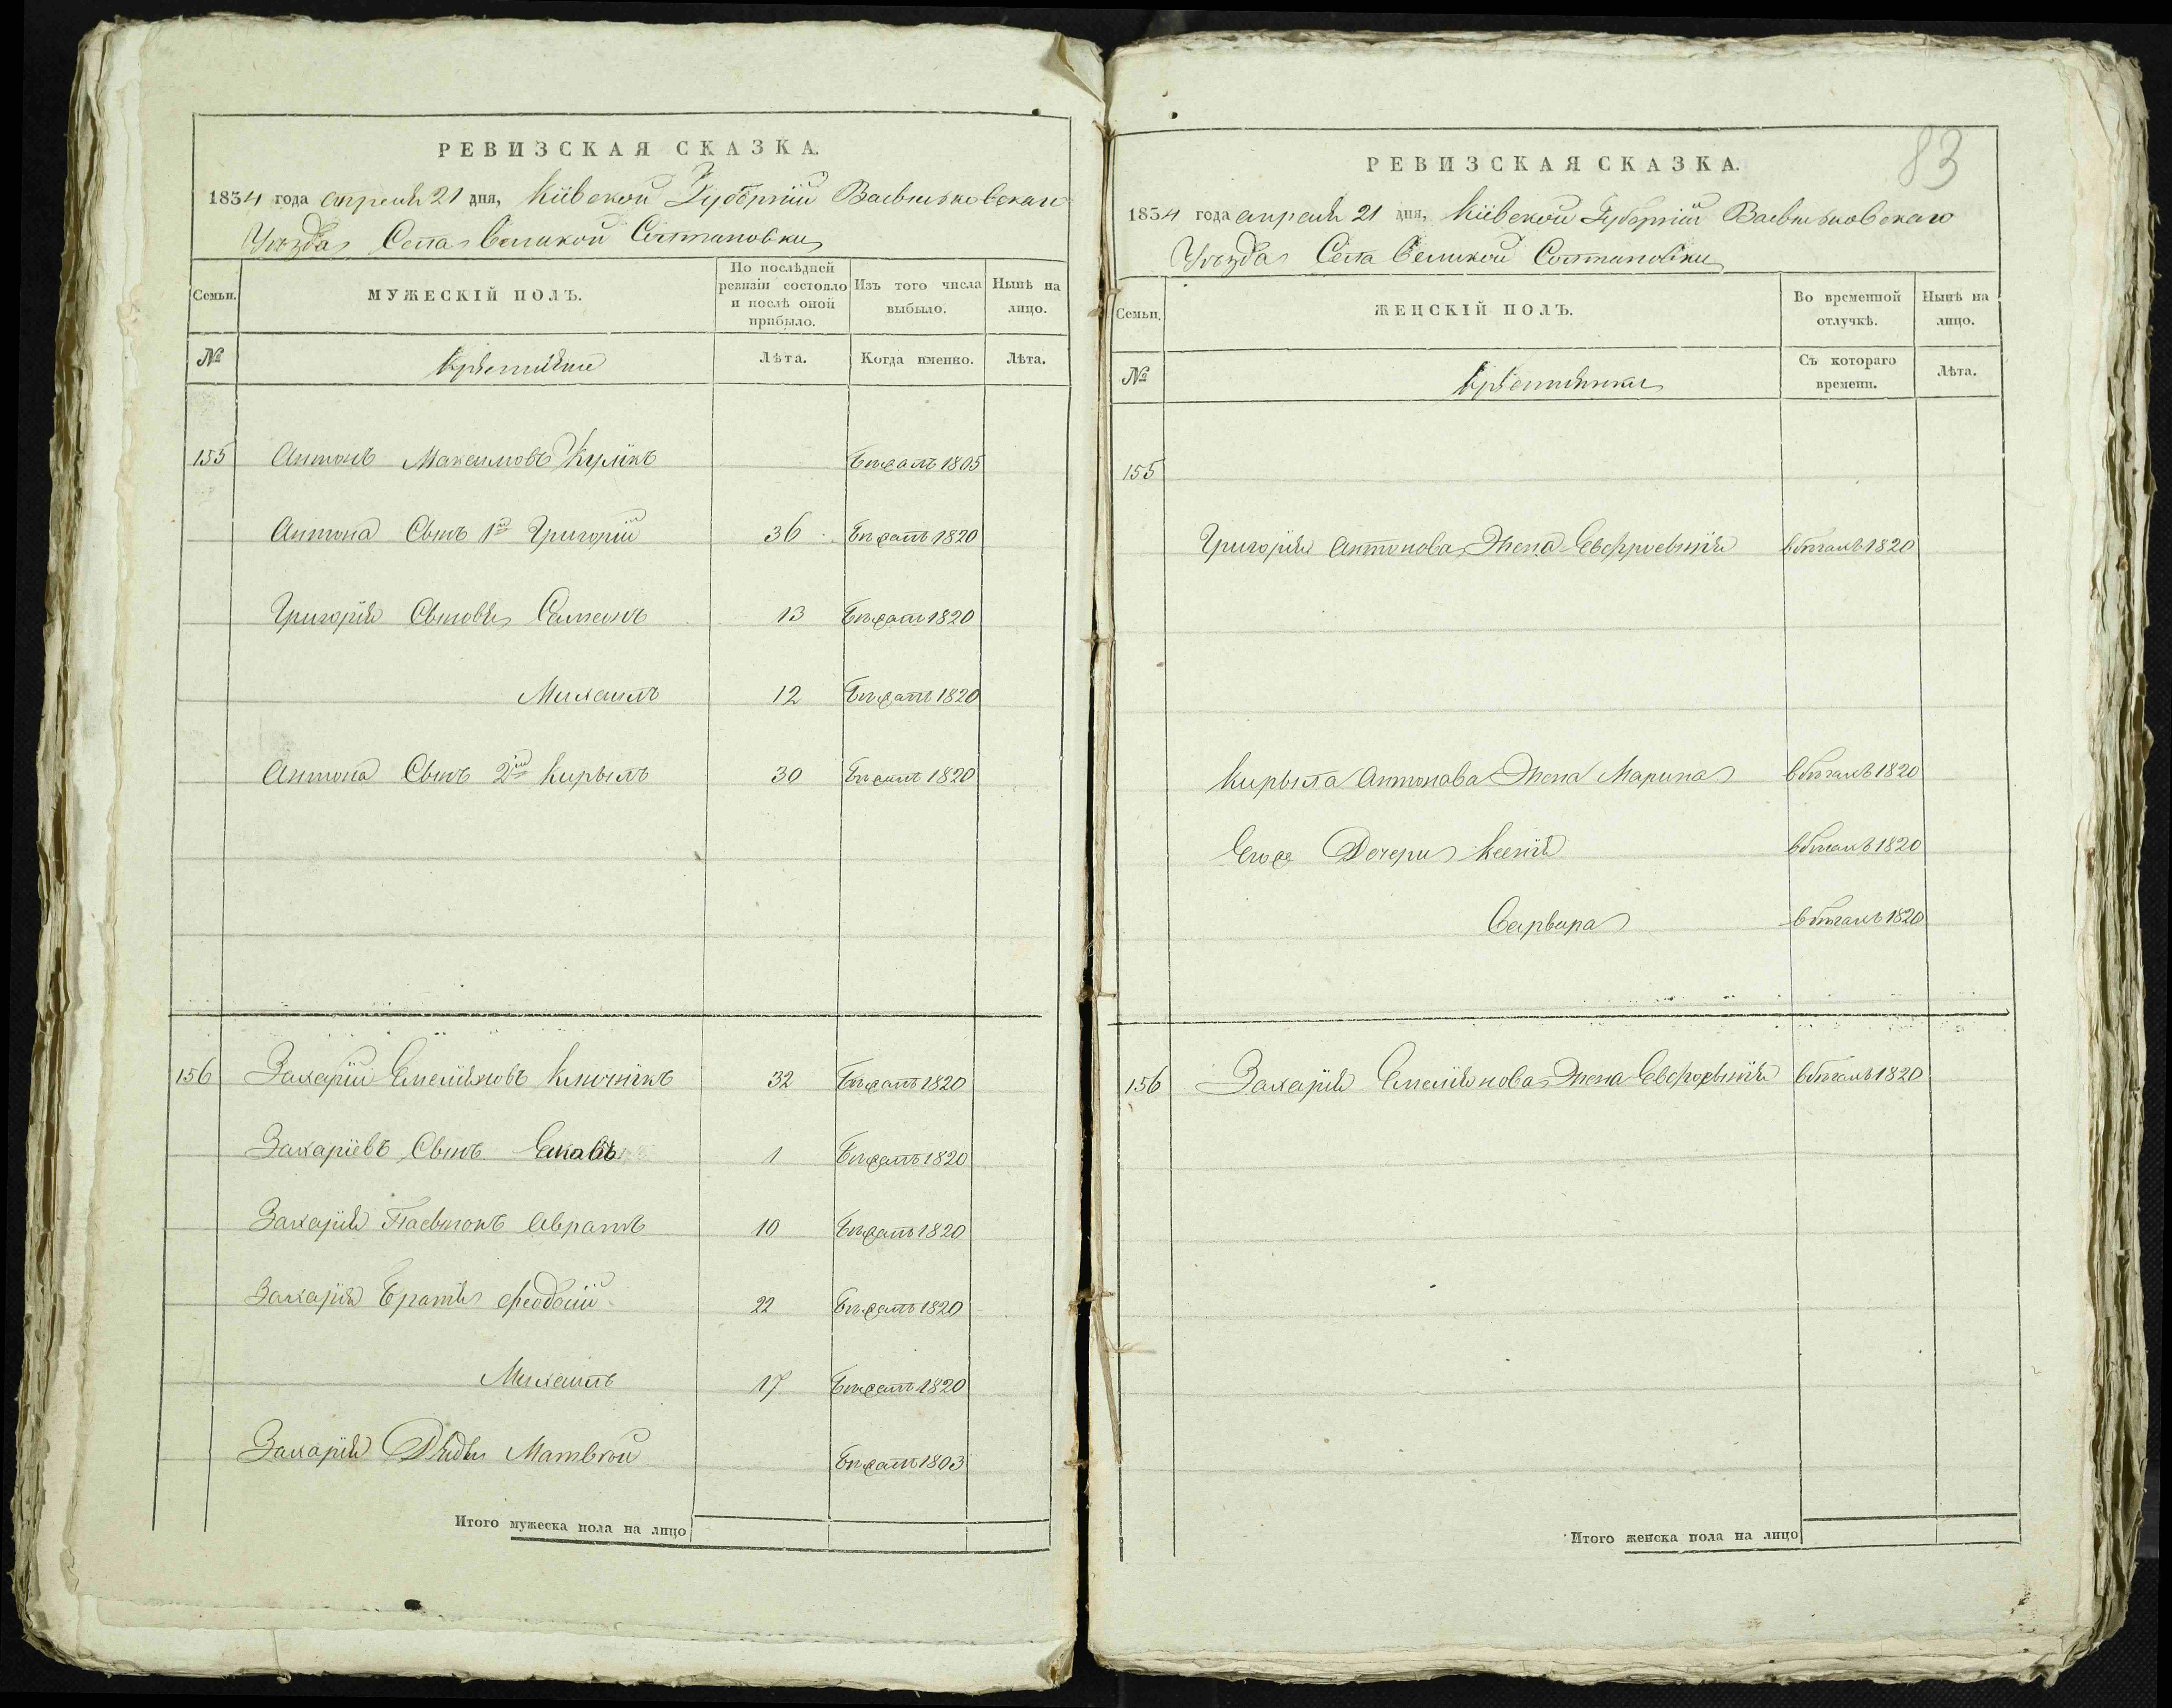 РЕВИЗСКАЯ СКАЗКА.
1834 года апреля 21 дня, Кіевской Губерніи Васильковскаго
Уѣзда Села Великой Солтановки
Семьи.
МУЖЕСКІЙ ПОЛЪ.
По послѣдней ревизіи состояло и послѣ оной прибыло.
Изъ того числа выбыло.
Нынѣ на лицо.
№
Крестьяне
Лѣта.
Когда именно.
Лѣта.
155 Антонъ Максимовъ Куликъ Бѣжалъ 1805
Антона Сынъ 1й Григорій 36 Бѣжалъ 1820
Григорія Сыновья Семенъ 13 Бѣжалъ 1820
Михаилъ 12 Бѣжалъ 1820
Антона Сынъ 2й Кирылъ 30 Бѣжалъ 1820
156 Захарій Емеліяновъ Ключникъ 32 Бѣжалъ 1820
Захаріевъ Сынъ Яковъ 1 Бѣжалъ 1820
Захарія Пасынокъ Аврамъ 10 Бѣжалъ 1820
Захарія Братья Феодосій 22 Бѣжалъ 1820
Михаилъ 17 Бѣжалъ 1820
Захарія Дядя Матвѣй Бѣжалъ 1803
Итого мужеска пола на лицо
83
РЕВИЗСКАЯ СКАЗКА.
1834 года апреля 21 дня, Кіевской Губерніи Васильковскаго
Уѣзда Села Великой Солтановки
Семьи.
ЖЕНСКІЙ ПОЛЪ.
Во временной отлучкѣ.
Нынѣ на лицо.
№
Крестьянки
Съ котораго времени.
Лѣта.
155
Григорія Антонова Жена Евфросинія в бѣгахъ 1820
Кирыла Антонова Жена Марина в бѣгахъ 1820
Его же Дочери Ксенія в бѣгахъ 1820
Варвара в бѣгахъ 1820
156 Захарія Емеліянова Жена Евфросинія в бѣгахъ 1820
Итого женска пола на лицо